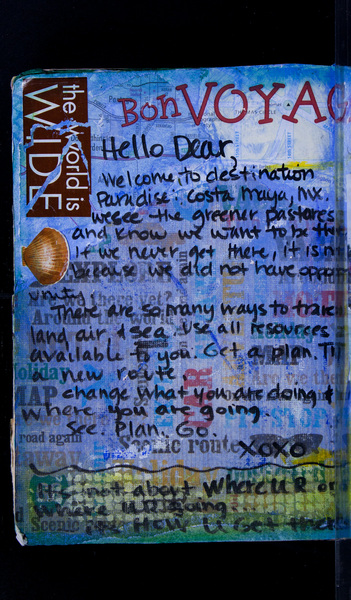 the world is
WIDE
Bon VOYAG
Hello Dear,
Welcome to destination
Paradise: Costa Maya, Mx.
we see the greener pastures
and know we want to be the
If we never get there, it is n
because we did not have oppor
There are so many ways to trave
land, air, & sea. Use all resources
available to you. Get a plan.
a new route
change what you are doing &
where you are going.
See. Plan. Go.
XOXO
road again
Scenic route
It's not about Where U R or
where UR going...
its How U Get there